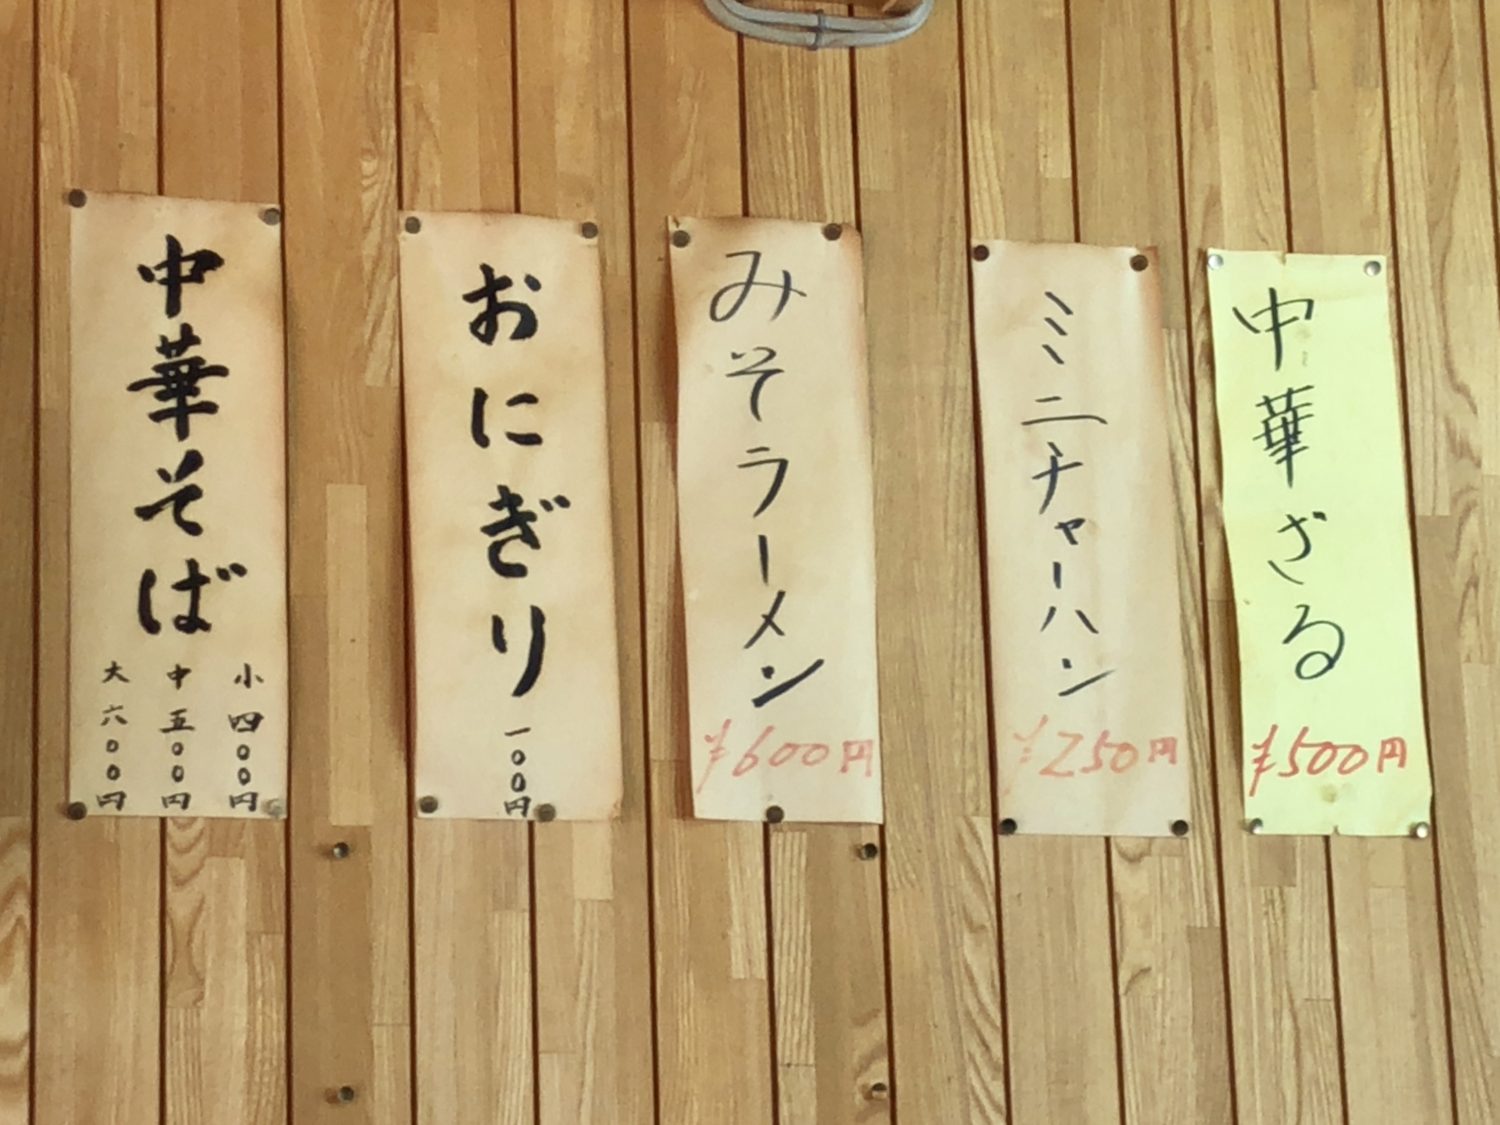 中華そば
小四〇〇円
中五〇〇円
大六〇〇円
おにぎり
一〇〇円
みそラーメン
¥600円
ミニチャーハン
¥250円
中華ざる
¥500円